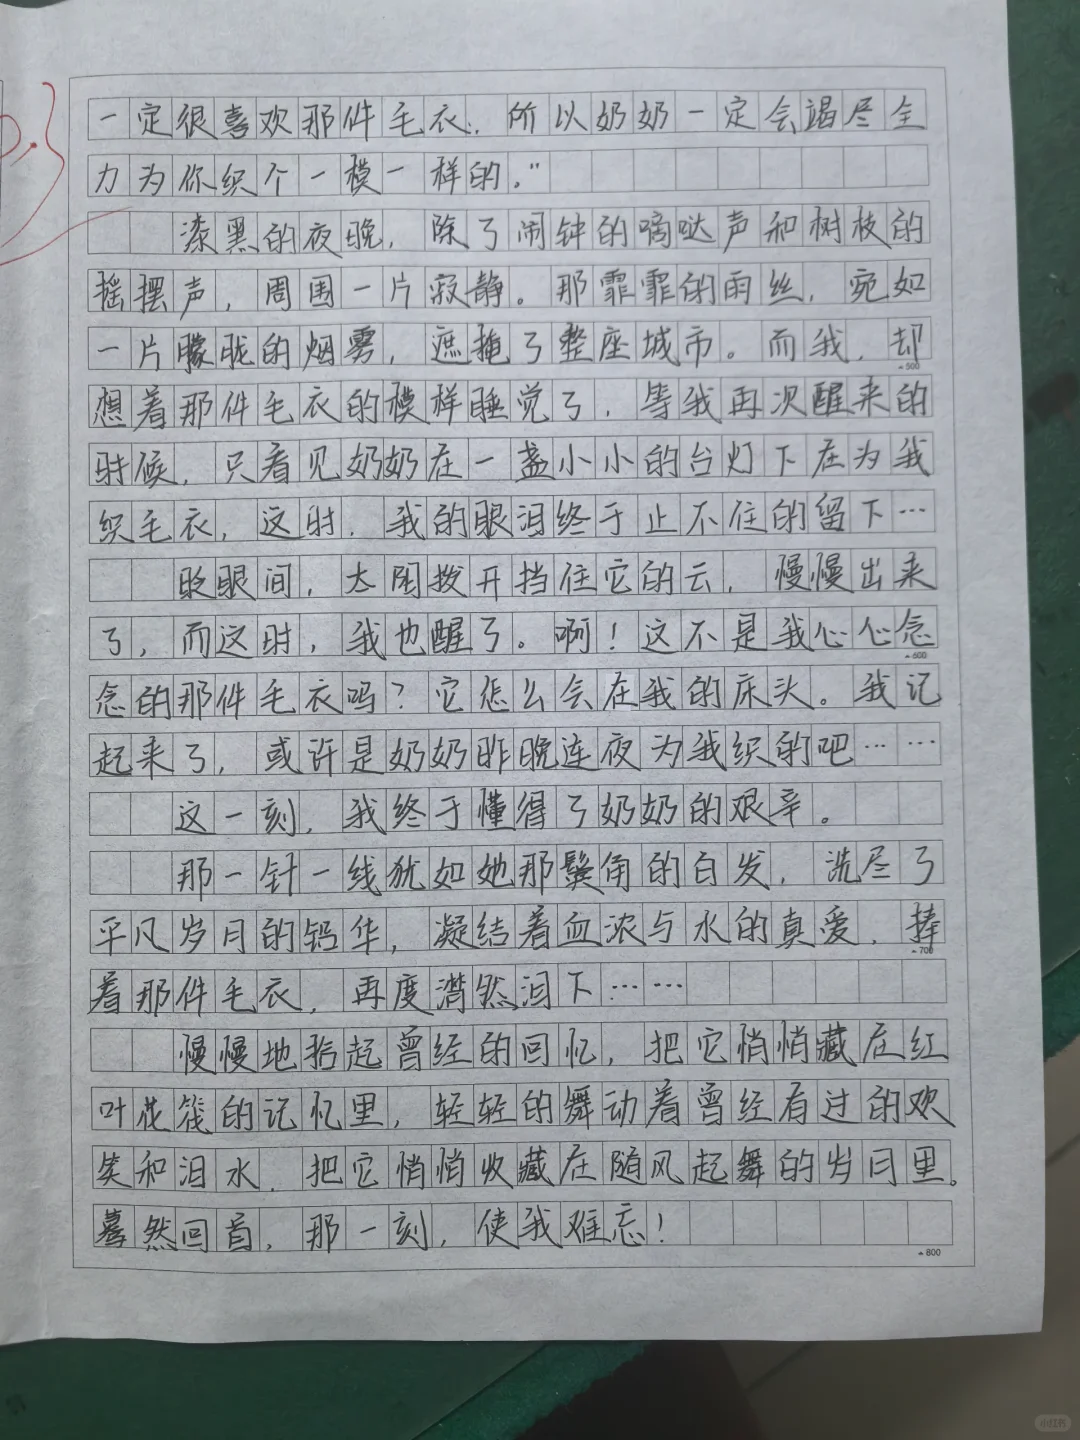 一定很喜欢那件毛衣,所以奶奶一定会竭尽全
力为你织个一模一样的."
漆黑的夜晚,除了闹钟的嘀哒声和树枝的
摇摆声,周围一片寂静。那霏霏的雨丝,宛如
一片朦胧的烟雾,遮掩了整座城市。而我,却
500
想着那件毛衣的模样睡觉了,等我再次醒来的
时候,只看见奶奶在一盏小小的台灯下在为我
织毛衣,这时,我的眼泪终于止不住的留下…
眨眼间,太阳拨开挡住它的云,慢慢出来
了,而这时,我也醒了。啊!这不是我心心念
600
念的那件毛衣吗?它怎么会在我的床头。我记
起来了,或许是奶奶昨晚连夜为我织的吧……
这一刻,我终于懂得了奶奶的艰辛。
那一针一线犹如她那鬓角的白发,洗尽了
平凡岁月的铅华,凝结着血浓与水的真爱,捧
700
着那件毛衣,再度潸然泪下……
慢慢地拾起曾经的回忆,把它悄悄藏在红
叶花笺的记忆里,轻轻的舞动着曾经有过的欢
笑和泪水.把它悄悄收藏在随风起舞的岁月里。
蓦然回首,那一刻,使我难忘!
800
小红书